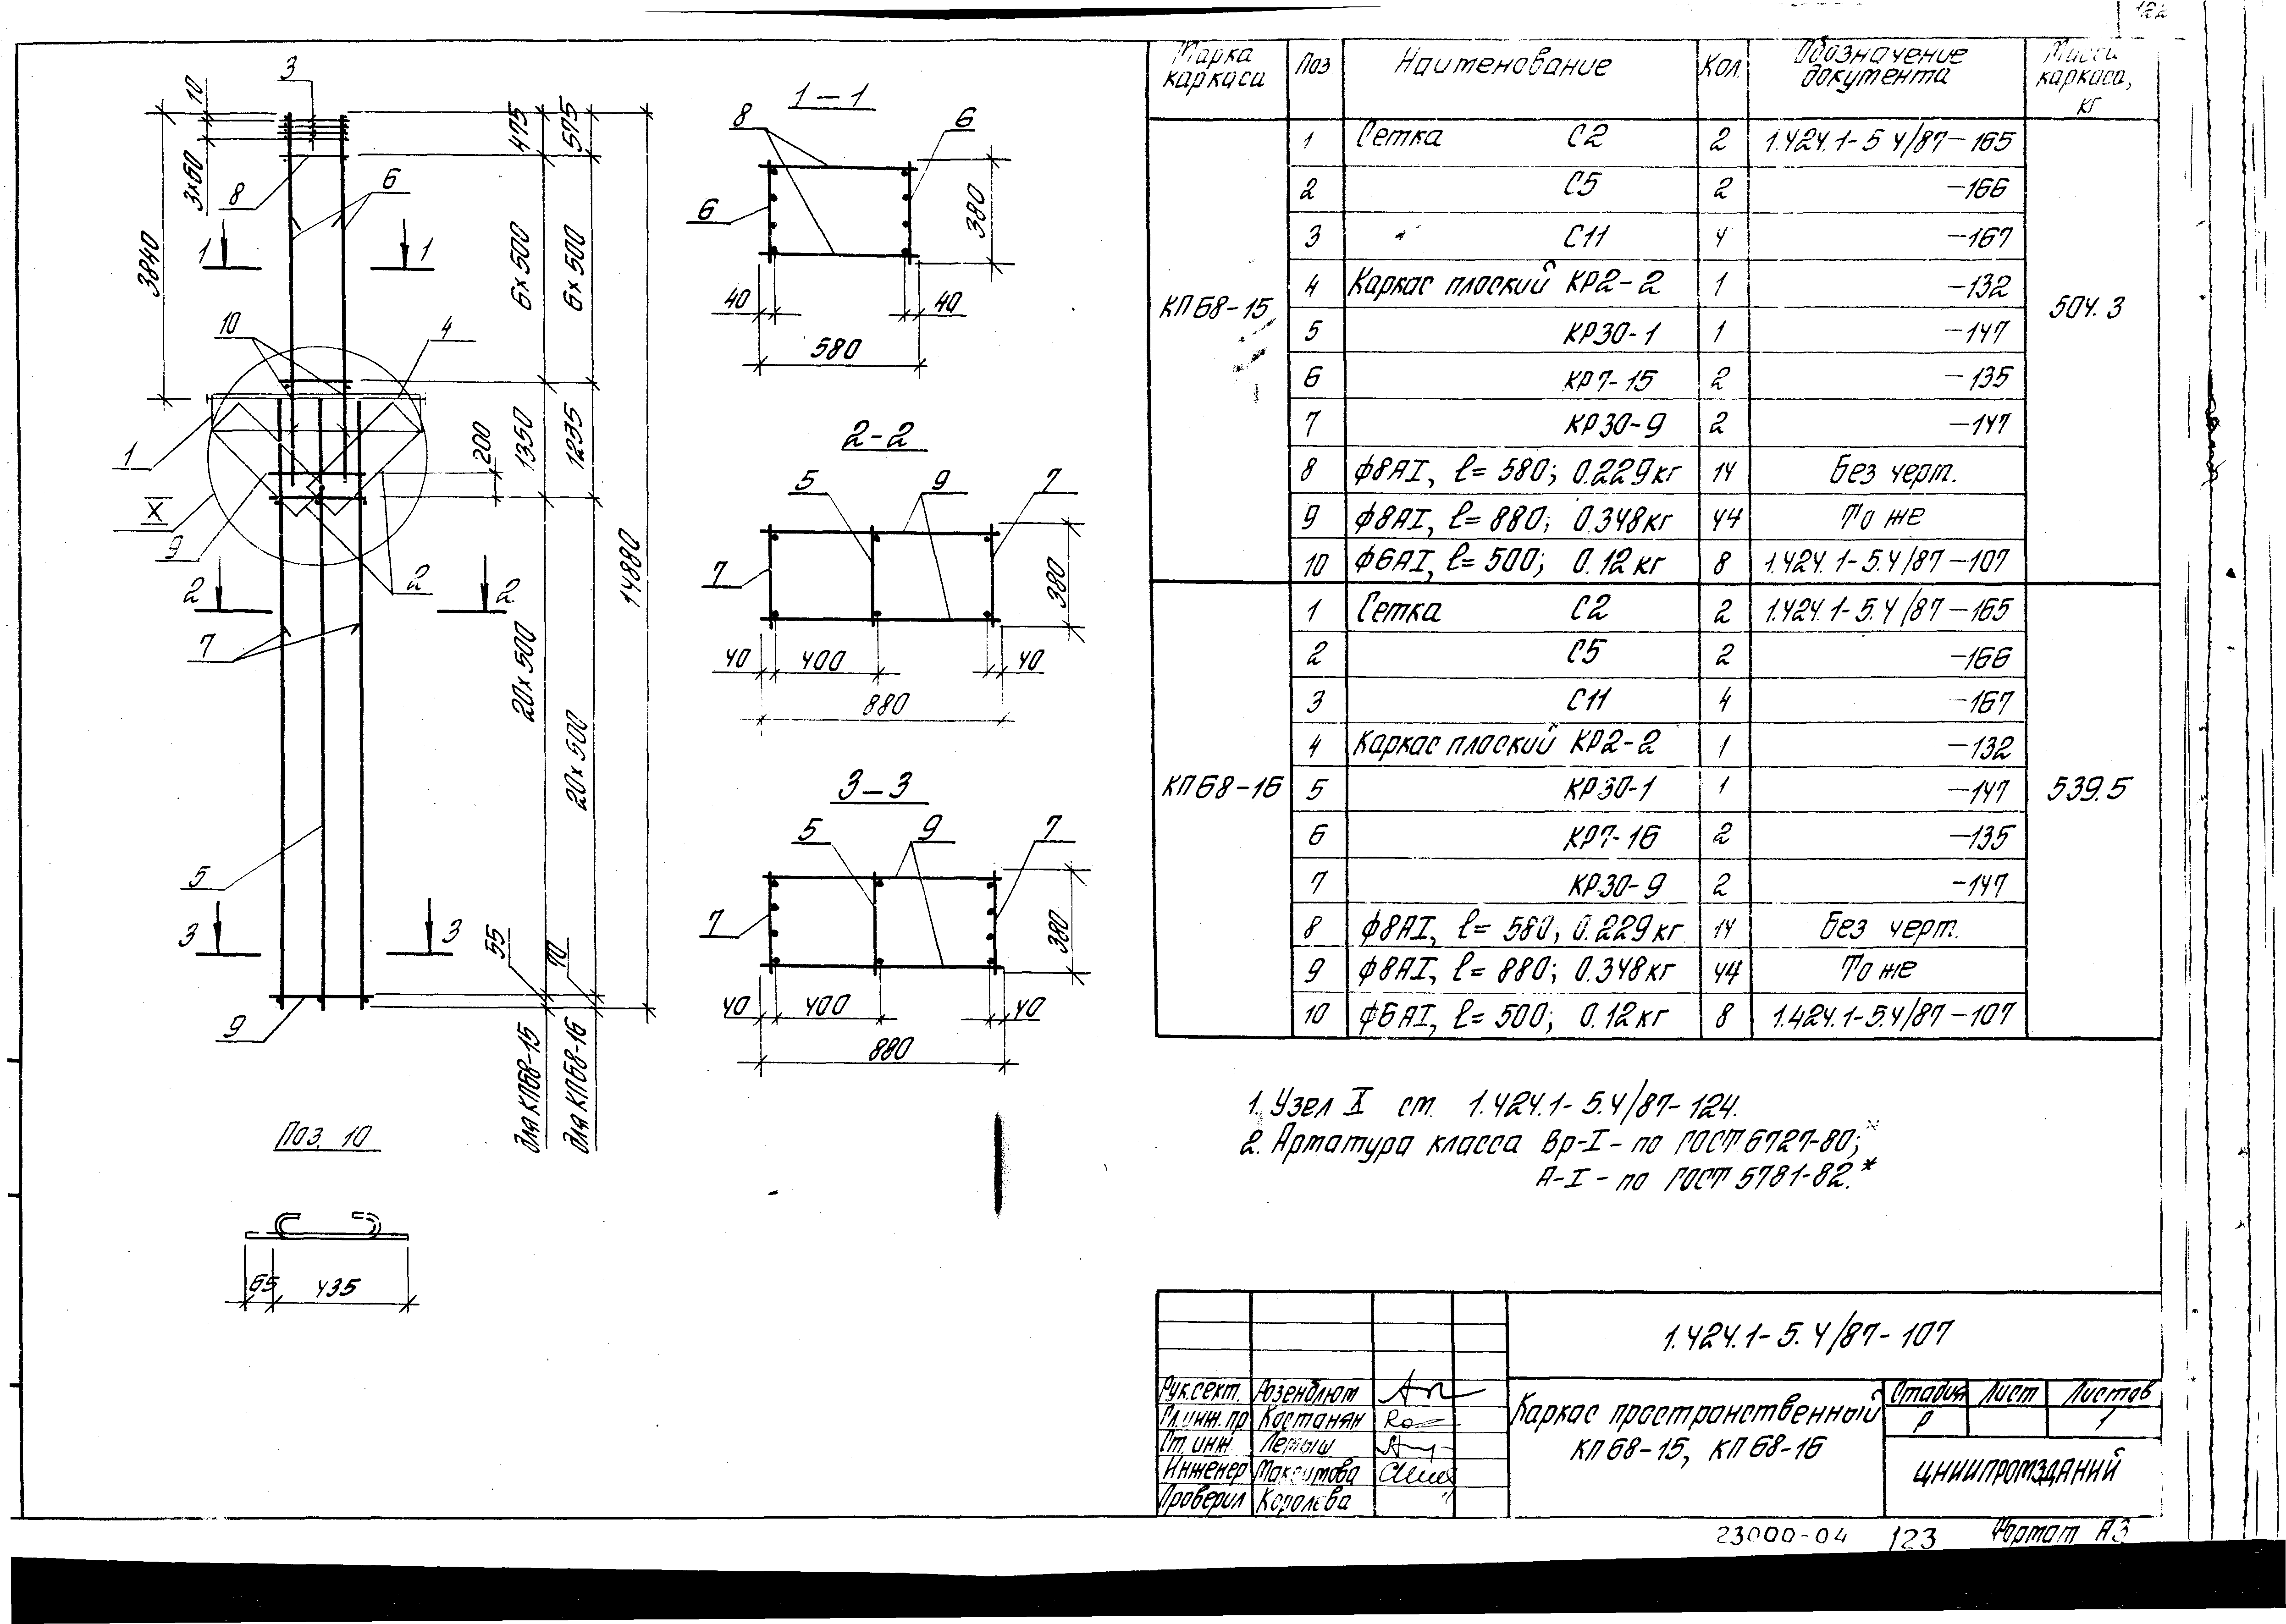 Марка каркаса | Поз. | Наименование | Кол. | Обозначение документа | Масса каркаса, кг
КП68-15 | 1 | Сетка С2 | 2 | 1.424.1-5.4/87-165 | 504.3
2 | С5 | 2 | -166
3 | С11 | 4 | -167
4 | Каркас плоский КР2-2 | 1 | -132
5 | КР30-1 | 1 | -147
6 | КР7-15 | 2 | -135
7 | КР30-9 | 2 | -147
8 | ф8АI, ℓ=580; 0.229кг | 14 | Без черт.
9 | ф8АI, ℓ=880; 0.348кг | 44 | То же
10 | ф6АI, ℓ=500; 0.12кг | 8 | 1.424.1-5.4/87-107
КП68-16 | 1 | Сетка С2 | 2 | 1.424.1-5.4/87-165 | 539.5
2 | С5 | 2 | -166
3 | С11 | 4 | -167
4 | Каркас плоский КР2-2 | 1 | -132
5 | КР30-1 | 1 | -147
6 | КР7-16 | 2 | -135
7 | КР30-9 | 2 | -147
8 | ф8АI, ℓ=580; 0.229кг | 14 | Без черт.
9 | ф8АI, ℓ=880; 0.348кг | 44 | То же
10 | ф6АI, ℓ=500; 0.12кг | 8 | 1.424.1-5.4/87-107
1. Узел X см. 1.424.1-5.4/87-124.
2. Арматура класса Вр-I - по ГОСТ 6727-80;*
А-I - по ГОСТ 5781-82.*
3
10
3×60
3840
8
6
1 1
10
4
1
X
9
2
2 2
7
5
3 3
9
475
575
6×500
6×500
200
1350
1235
20×500
20×500
14880
55
70
для КП68-15
для КП68-16
1-1
8
6
6
380
40 40
580
2-2
5 9 7
7
380
40 400 40
880
3-3
5 9 7
7
380
40 400 40
880
Поз. 10
65 435
1.424.1-5.4/87-107
Рук.сект. Розенблюм
Гл.инж.пр Кастанян
Ст. инж.
Инженер Максимова
Проверил Королева
Каркас пространственный
КП68-15, КП68-16
Стадия Лист Листов
Р 1
ЦНИИПРОМЗДАНИЙ
23000-04 123 Формат А3